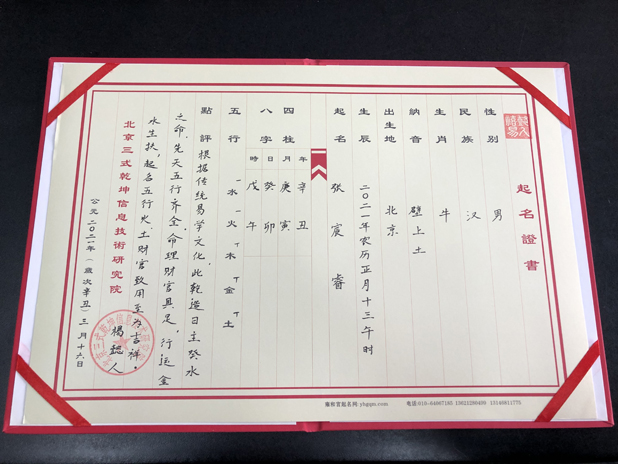 起名證書
性别 男
民族 汉
生肖 牛
納音 壁上土
出生地 北京
生辰 二〇二一年农历正月十三午时
起名 张宸睿
年 辛丑
四柱 月 庚寅
八字 日 癸卯
時 戊午
五行 水 火 木 金 土
點評 根据传统易学文化,此乾造日主癸水
之命,先天五行齐全,命理财官具足,行运金
水生扶,起名五行火、土财官致用至为吉祥。
杨懿人
北京三式乾坤信息技術研究院
公元二〇二一年(歲次辛丑)三月十六日
雍和宫起名网: yhgqm.com 电话:010-84067185 13621290400 15140811775